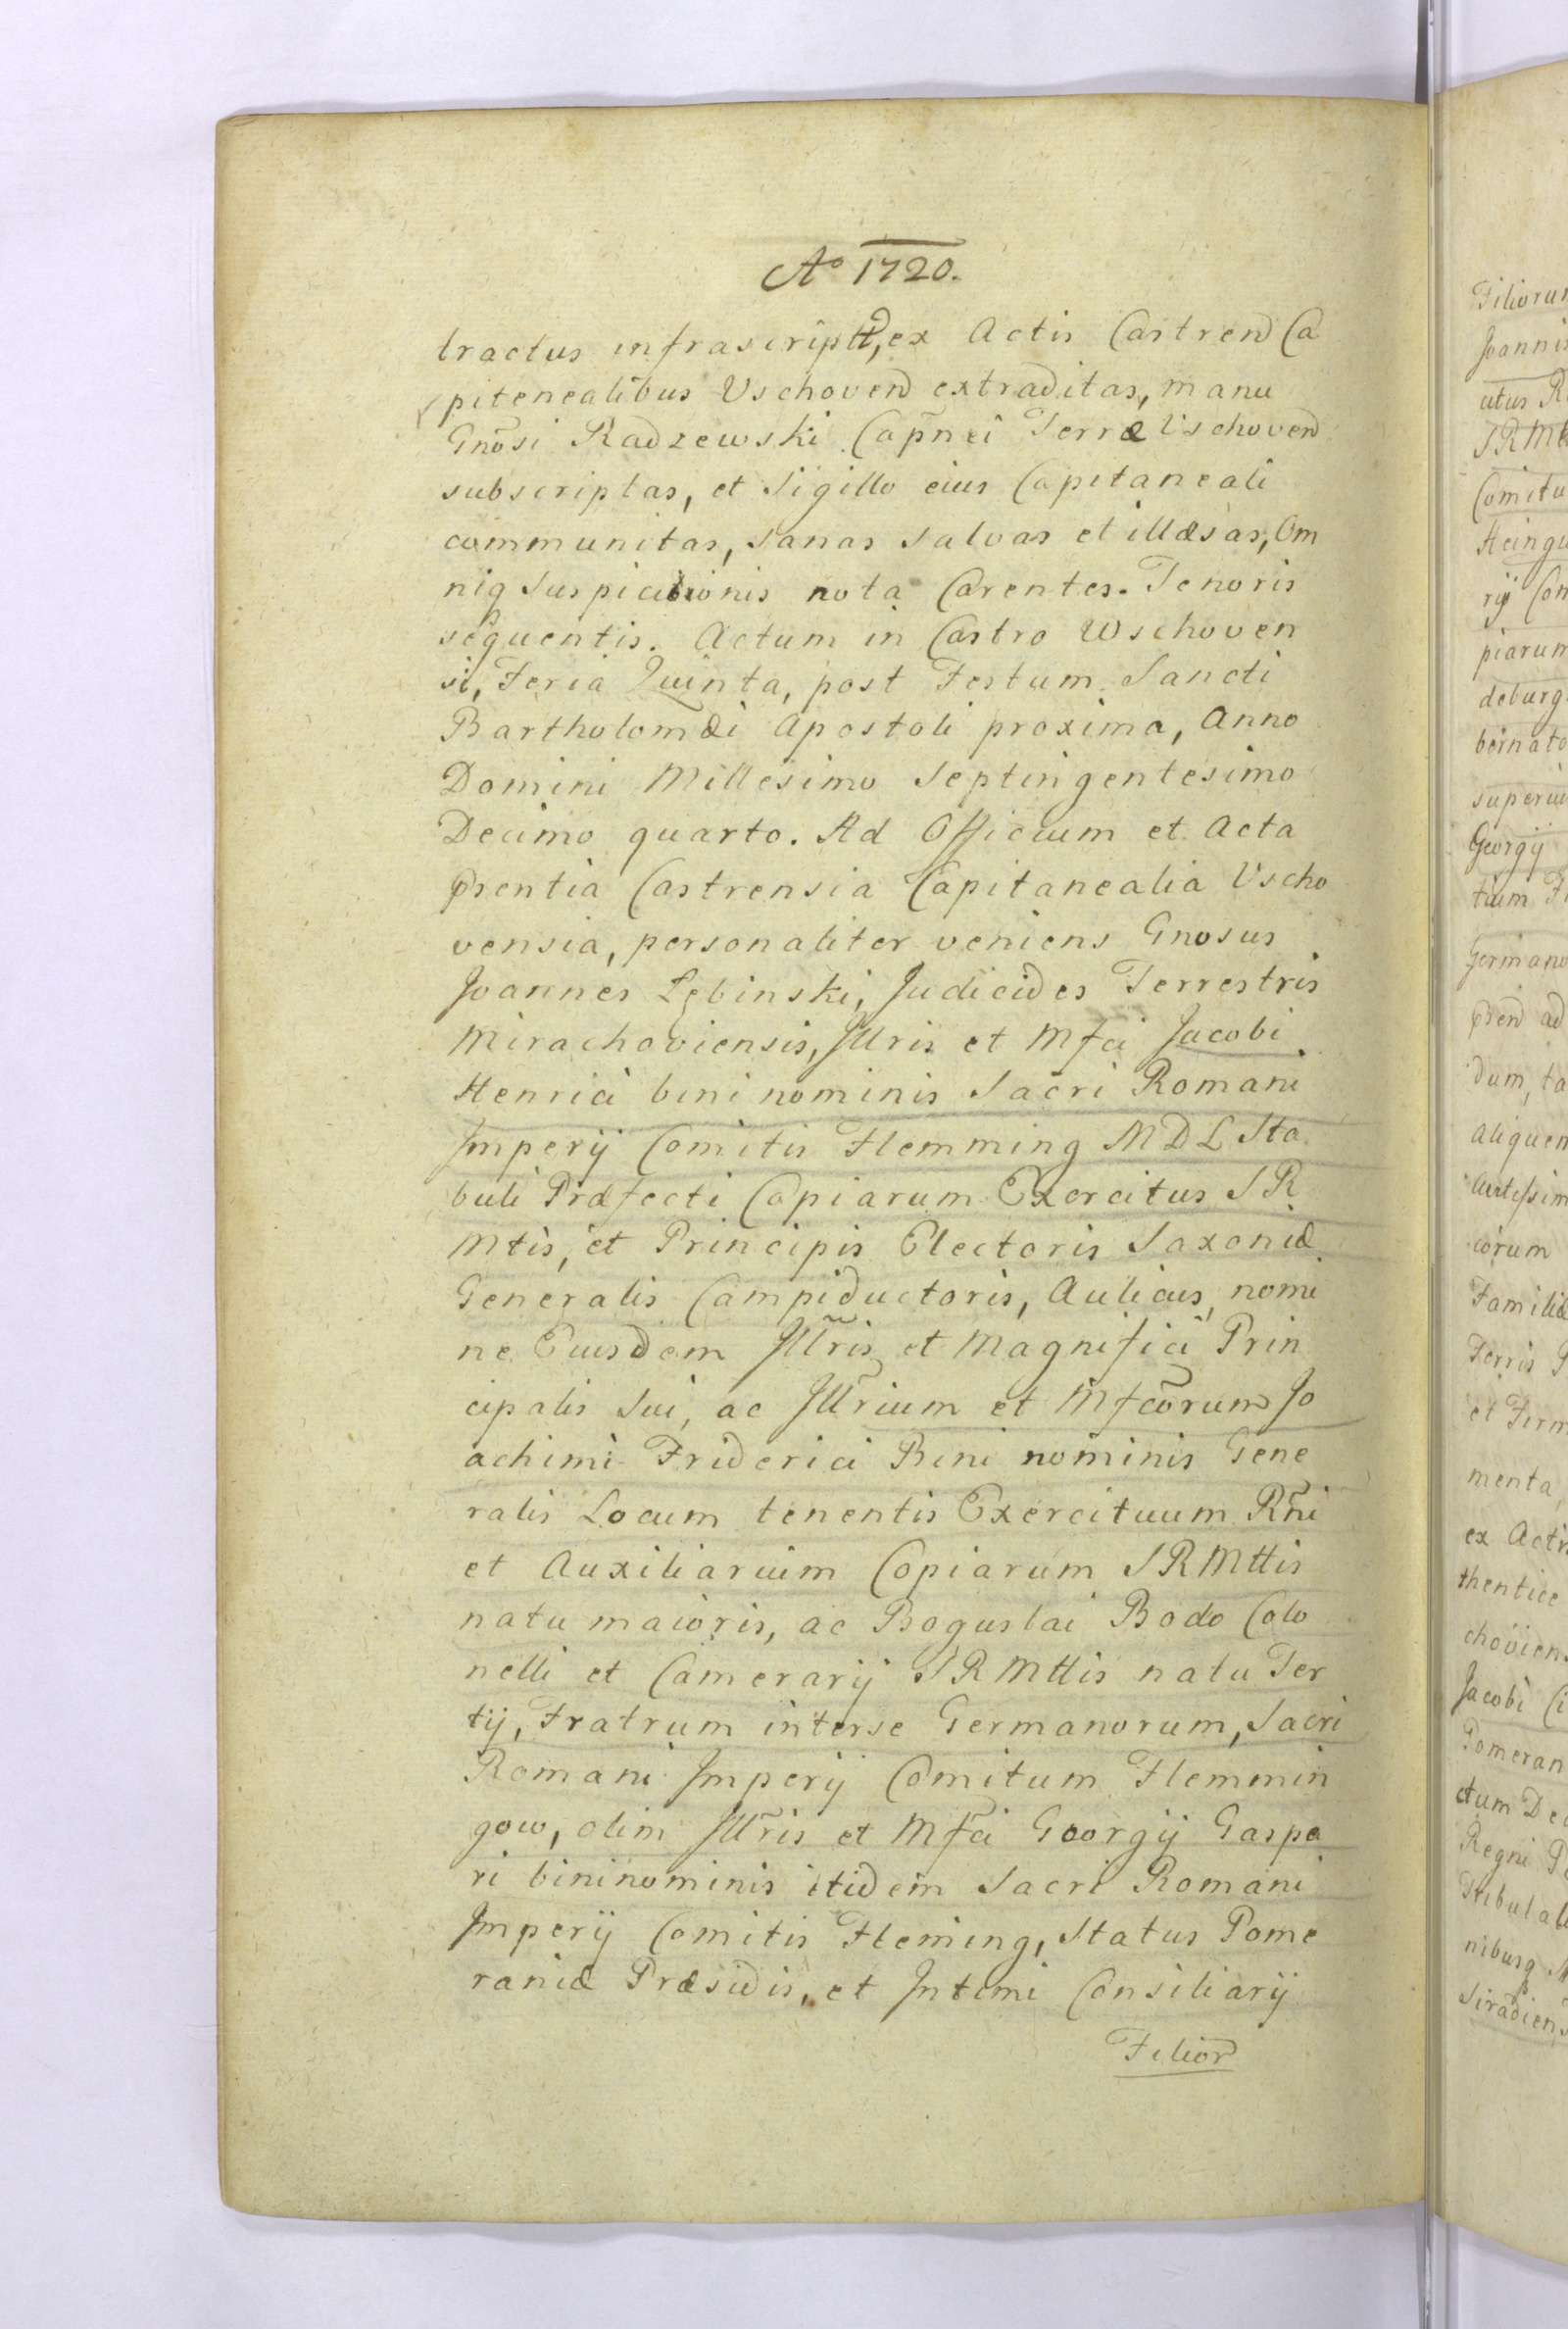 Aº 1720.
tractus infrascript, ex Actis Castren Ca
pitenealibus Vschoven extraditas, manu
Gnosi Radzewski Capnei Terræ Vschoven
subscriptas, et Sigillo eius Capitaneali
communitas, sanas salvas et illæsas, Om
niq Suspicionis nota Carentes. Tenoris
sequentis. Actum in Castro Wschoven
si, Feria Quinta, post Festum Sancti
Bartholomæi Apostoli proxima, Anno
Domini Millesimo Septingentesimo
Decimo quarto. Ad Officium et Acta
prentia Castrensia Capitanealia Vscho
vensia, personaliter veniens Gnosus
Joannes Lębinski, Judicides Terrestris
Mirachoviensis, Jllris et Mfci Jacobi
Henrici bini nominis Sacri Romani
Jmperij Comitis Flemming MDL Sta
buli Præfecti Copiarum Exercitus SR
Mtis, et Principis Electoris Saxoniæ
Generalis Campiductoris, Aulicus, nomi
ne Eiusdem Jllris et Magnifici Prin
cipalis Sui, ac Jllrium et Mfcorum Jo
achimi Friderici Bini nominis Gene
ralis Locum tenentis Exercituum Rni
et Auxiliarium Copiarum SRMttis
natu maioris, ac Boguslai Bodo Colo
nelli et Camerarij SRMttis natu Ter
tij, Fratrum interse Germanorum, Sacri
Romani Jmperij Comitum Flemmin
gow, olim Jllris et Mfci Georgij Gaspa
ri bininominis itidem Sacri Romani
Jmperij Comitis Fleming, Status Pome
raniæ Præsidis, et Jntimi Consiliarij
Filior
Joannis
utus
Comitu
piarum
deburg
bernato
superiu
Georgij
tium
Germano
dum, ta
aliquem
corum
Familiæ
Terris
et Firm
menta,
ex Actis
thentice
choviens
Jacobi
Pomeran
ctum
Regni
Siradiens